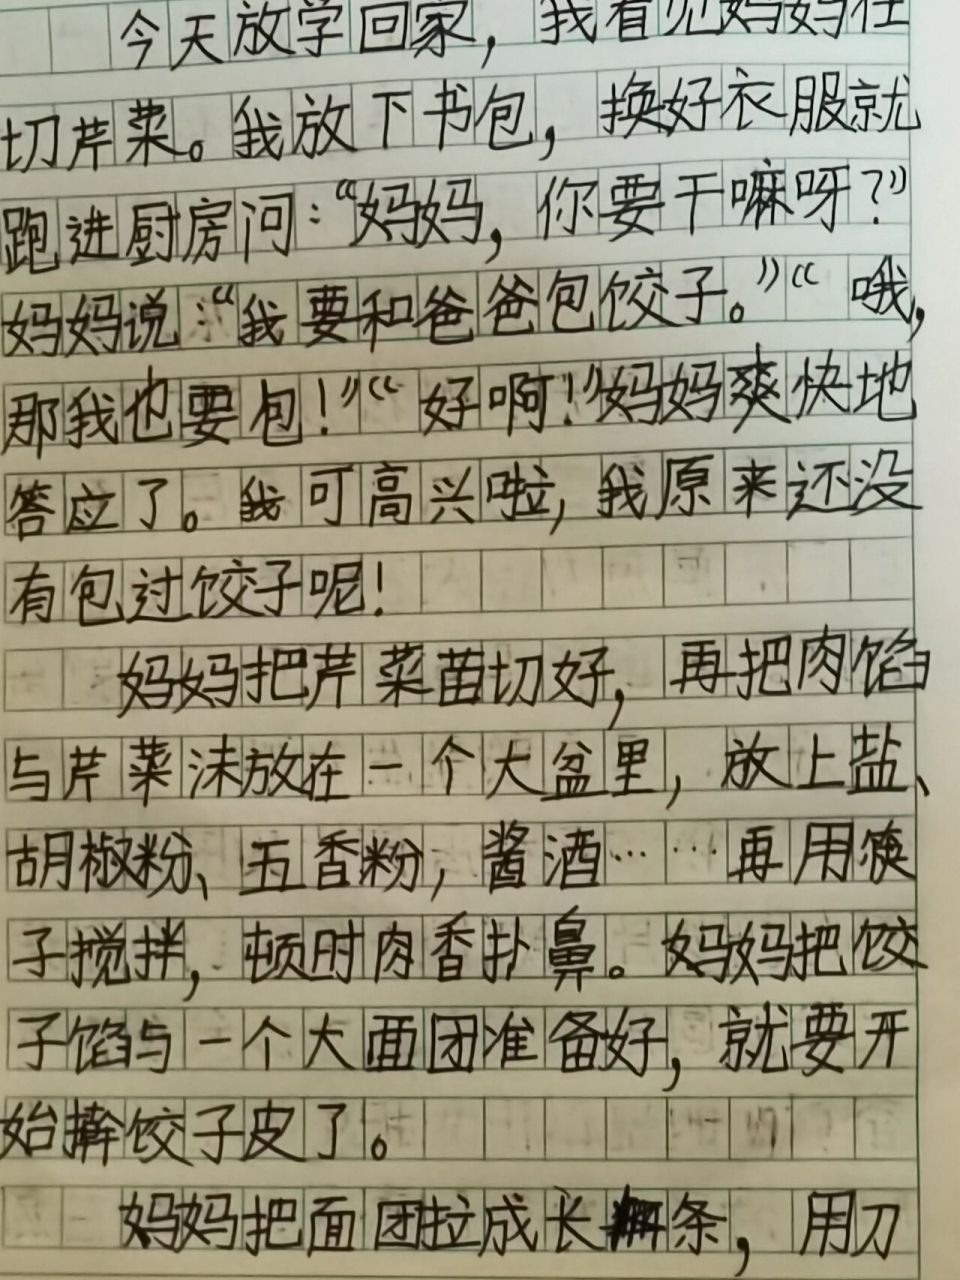 今天放学回家，我看见妈妈在
切芹菜。我放下书包，换好衣服就
跑进厨房问：“妈妈，你要干嘛呀？”
妈妈说：“我要和爸爸包饺子。”“哦，
那我也要包！”“好啊！”妈妈爽快地
答应了。我可高兴啦，我原来还没
有包过饺子呢！
妈妈把芹菜苗切好，再把肉馅
与芹菜沫放在一个大盆里，放上盐、
胡椒粉、五香粉，酱酒……再用筷
子搅拌，顿时肉香扑鼻。妈妈把饺
子馅与一个大面团准备好，就要开
始擀饺子皮了。
妈妈把面团拉成长条，用刀